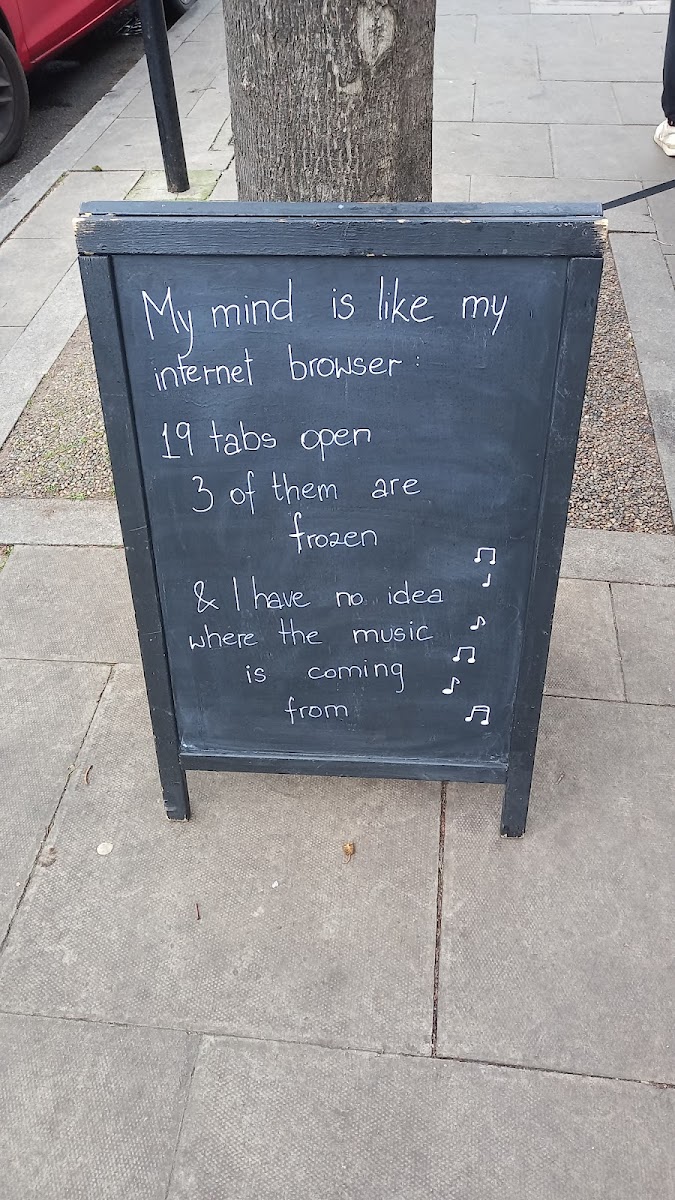 My mind is like my
internet browser:
19 tabs open
3 of them are
frozen
& I have no idea
where the music
is coming
from